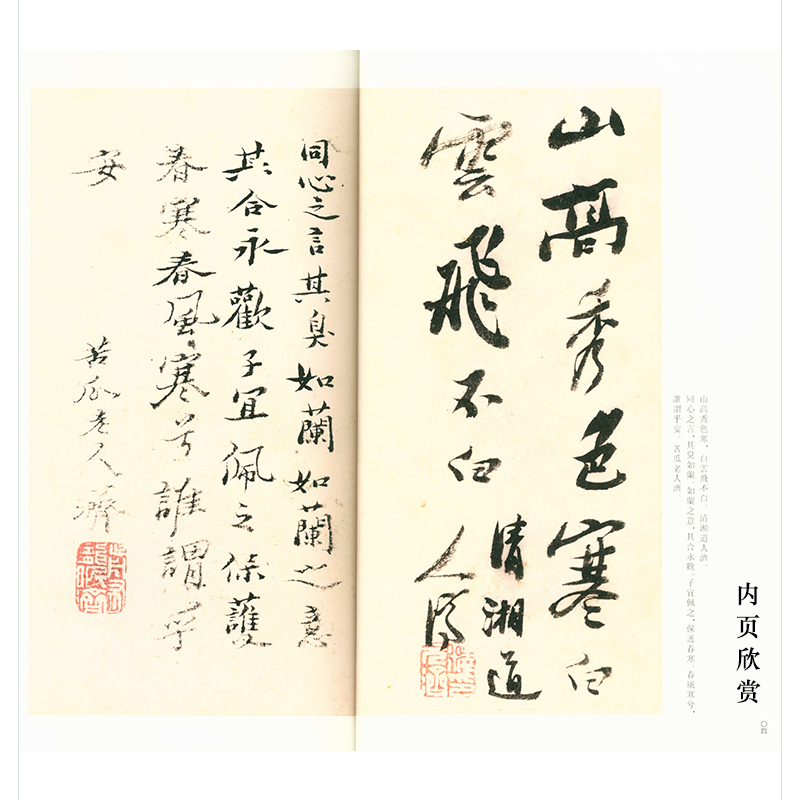 内页欣赏
山高秀色寒，白雲飛不白。清湘道人濟。
同心之言，其臭如蘭。如蘭之意，其合永歡。子宜佩之，保護春寒。春風寒兮，
誰謂乎安。苦瓜老人濟。
〇四
山高秀色寒白
雲飛不白
清湘道
人濟
同心之言其臭如蘭如蘭之意
其合永歡子宜佩之保護
春寒春風寒兮誰謂乎
安
苦瓜老人濟